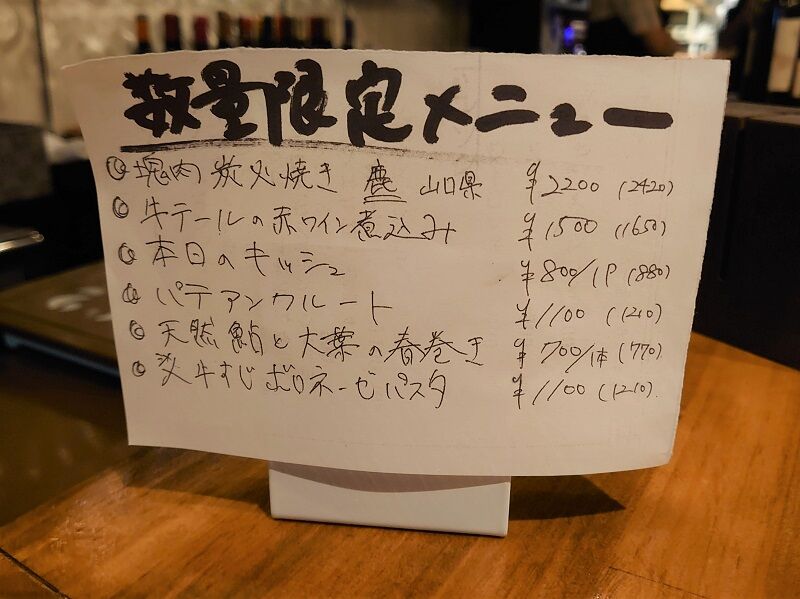 数量限定メニュー
◎ 塊肉炭火焼き 鹿 山口県 ¥2200 (2420)
◎ 牛テールの赤ワイン煮込み ¥1500 (1650)
◎ 本日のキッシュ ¥800/1P (880)
◎ パテアンクルート ¥1100 (1210)
◎ 天然鮎と大葉の春巻き ¥700/1本 (770)
◎ 牛すじボロネーゼパスタ ¥1100 (1210)